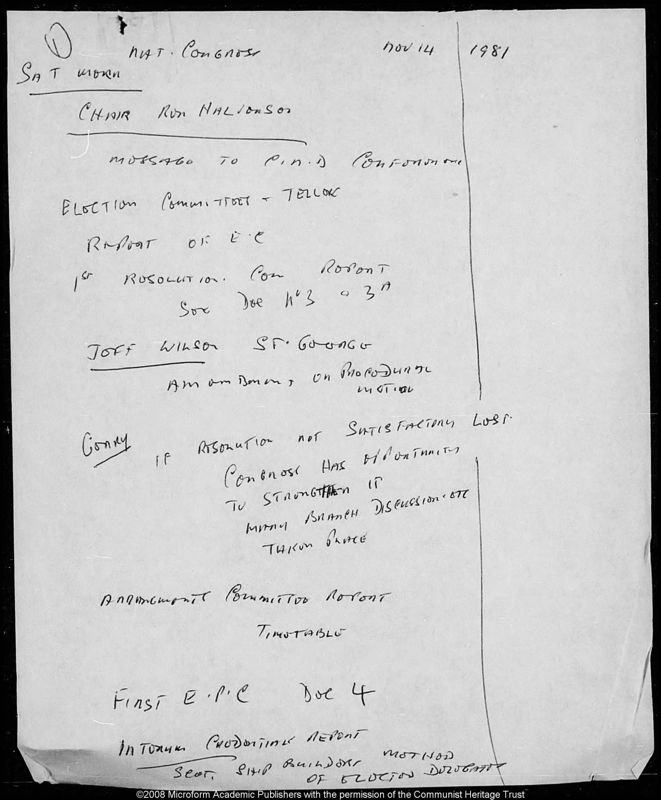 1
NAT. CONGRESS NOV 14 1981
SAT MORN
CHAIR RON HALVERSON
MESSAGE TO C.N.D CONFERENCE
ELECTION COMMITTEE + TELLER
REPORT OF E.C
1ST RESOLUTION. COM REPORT
SEE DOC No 3 + 3A
JEFF WILSON ST. GEORGE
AMENDMENT ON PROCEDURAL
MOTION
GERRY IF RESOLUTION NOT SATISFACTORY LOST.
CONGRESS HAS OPPORTUNITY
TO STRENGTHEN IT
MANY BRANCH DISCUSSION. ETC
TAKEN PLACE
ARRANGEMENTS COMMITTEE REPORT
TIMETABLE
FIRST E.P.C DOC 4
INTERIM CREDENTIALS REPORT
SCOT. SHIP BUILDERS METHOD
OF ELECTED DELEGATES
©2008 Microform Academic Publishers with the permission of the Communist Heritage Trust